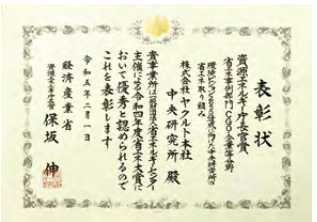 表彰状
資源エネルギー庁長官賞
省エネ事例部門 CGO・企業等分野
環境ビジョンと
省エネ取り組み
株式会社ヤクルト本社
中央研究所 殿
貴事業所は一般財団法人省エネルギーセンター
主催による令和四年度省エネ大賞に
おいて優秀と認められるので
これを表彰します
令和五年二月一日
経済産業省
資源エネルギー庁長官 保坂 伸